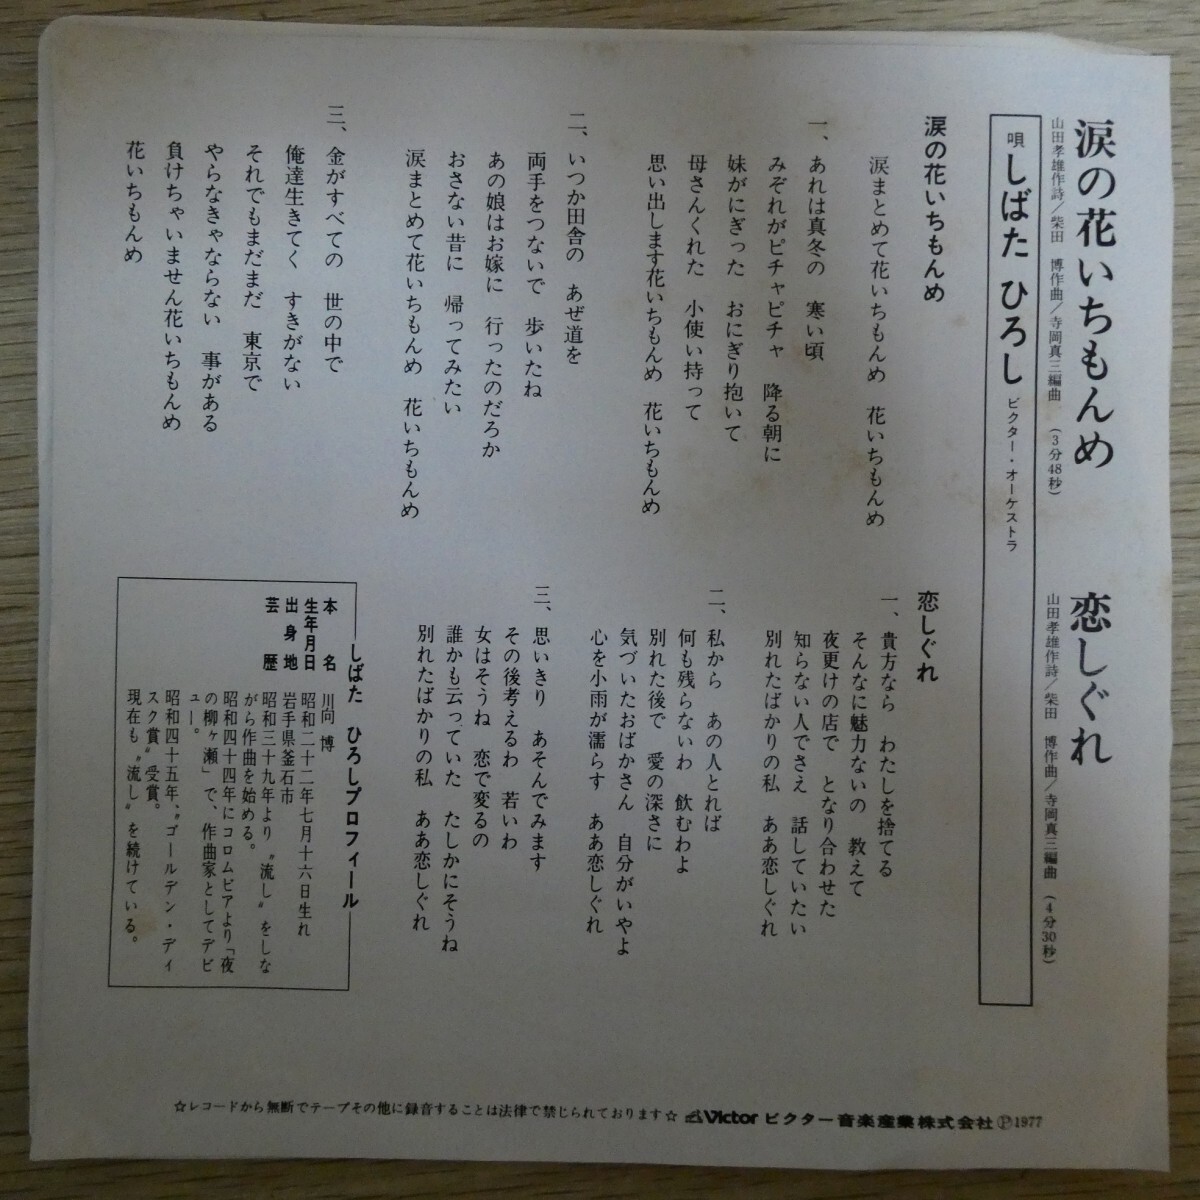 涙の花いちもんめ
山田孝雄作詩／柴田 博作曲／寺岡真三編曲 （3分48秒）
恋しぐれ
山田孝雄作詩／柴田 博作曲／寺岡真三編曲 （4分30秒）
唄 しばた ひろし ビクター・オーケストラ
涙の花いちもんめ
涙まとめて花いちもんめ 花いちもんめ
一、あれは真冬の 寒い頃
みぞれがピチャピチャ 降る朝に
妹がにぎった おにぎり抱いて
母さんくれた 小使い持って
思い出します花いちもんめ 花いちもんめ
二、いつか田舎の あぜ道を
両手をつないで 歩いたね
あの娘はお嫁に 行ったのだろか
おさない昔に 帰ってみたい
涙まとめて花いちもんめ 花いちもんめ
三、金がすべての 世の中で
俺達生きてく すきがない
それでもまだまだ 東京で
やらなきゃならない 事がある
負けちゃいません花いちもんめ
花いちもんめ
恋しぐれ
一、貴方なら わたしを捨てる
そんなに魅力ないの 教えて
夜更けの店で となり合わせた
知らない人でさえ 話していたい
別れたばかりの私 ああ恋しぐれ
二、私から あの人とれば
何も残らないわ 飲むわよ
別れた後で 愛の深さに
気づいたおばかさん 自分がいやよ
心を小雨が濡らす ああ恋しぐれ
三、思いきり あそんでみます
その後考えるわ 若いわ
女はそうね 恋で変るの
誰かも云っていた たしかにそうね
別れたばかりの私 ああ恋しぐれ
しばた ひろしプロフィール
本名 川向 博
生年月日 昭和二十二年七月十六日生れ
出身地 岩手県釜石市
芸歴 昭和三十九年より〝流し〟をしな
がら作曲を始める。
昭和四十四年にコロムビアより「夜
の柳ヶ瀬」で、作曲家としてデビ
ュー。
昭和四十五年、〝ゴールデン・ディ
スク賞〟受賞。
現在も〝流し〟を続けている。
☆レコードから無断でテープその他に録音することは法律で禁じられております☆ Victor ビクター音楽産業株式会社 Ⓟ1977